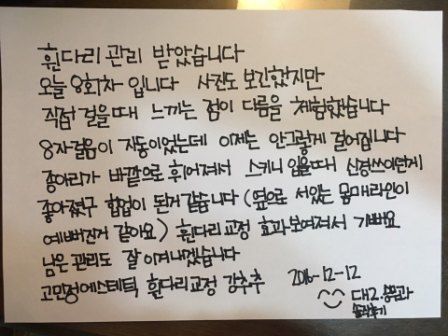 휜다리 관리 받았습니다
오늘 8회차 입니다 사진도 보긴했지만
직접 걸을때 느끼는 점이 다름을 체험했습니다
8자걸음이 자동이었는데 이제는 안그렇게 걸어집니다
종아리가 바깥으로 휘어져서 스키니 입을때 신경쓰이던게
좋아졌구 힙업이 된거같습니다 (옆으로 서있는 몸매라인이
예뻐진거 같아요) 휜다리교정 효과보여져서 기뻐요
남은관리도 잘 이겨내겠습니다
고민정에스테틱 휜다리교정 강추추 2016-12-12
솔직후기